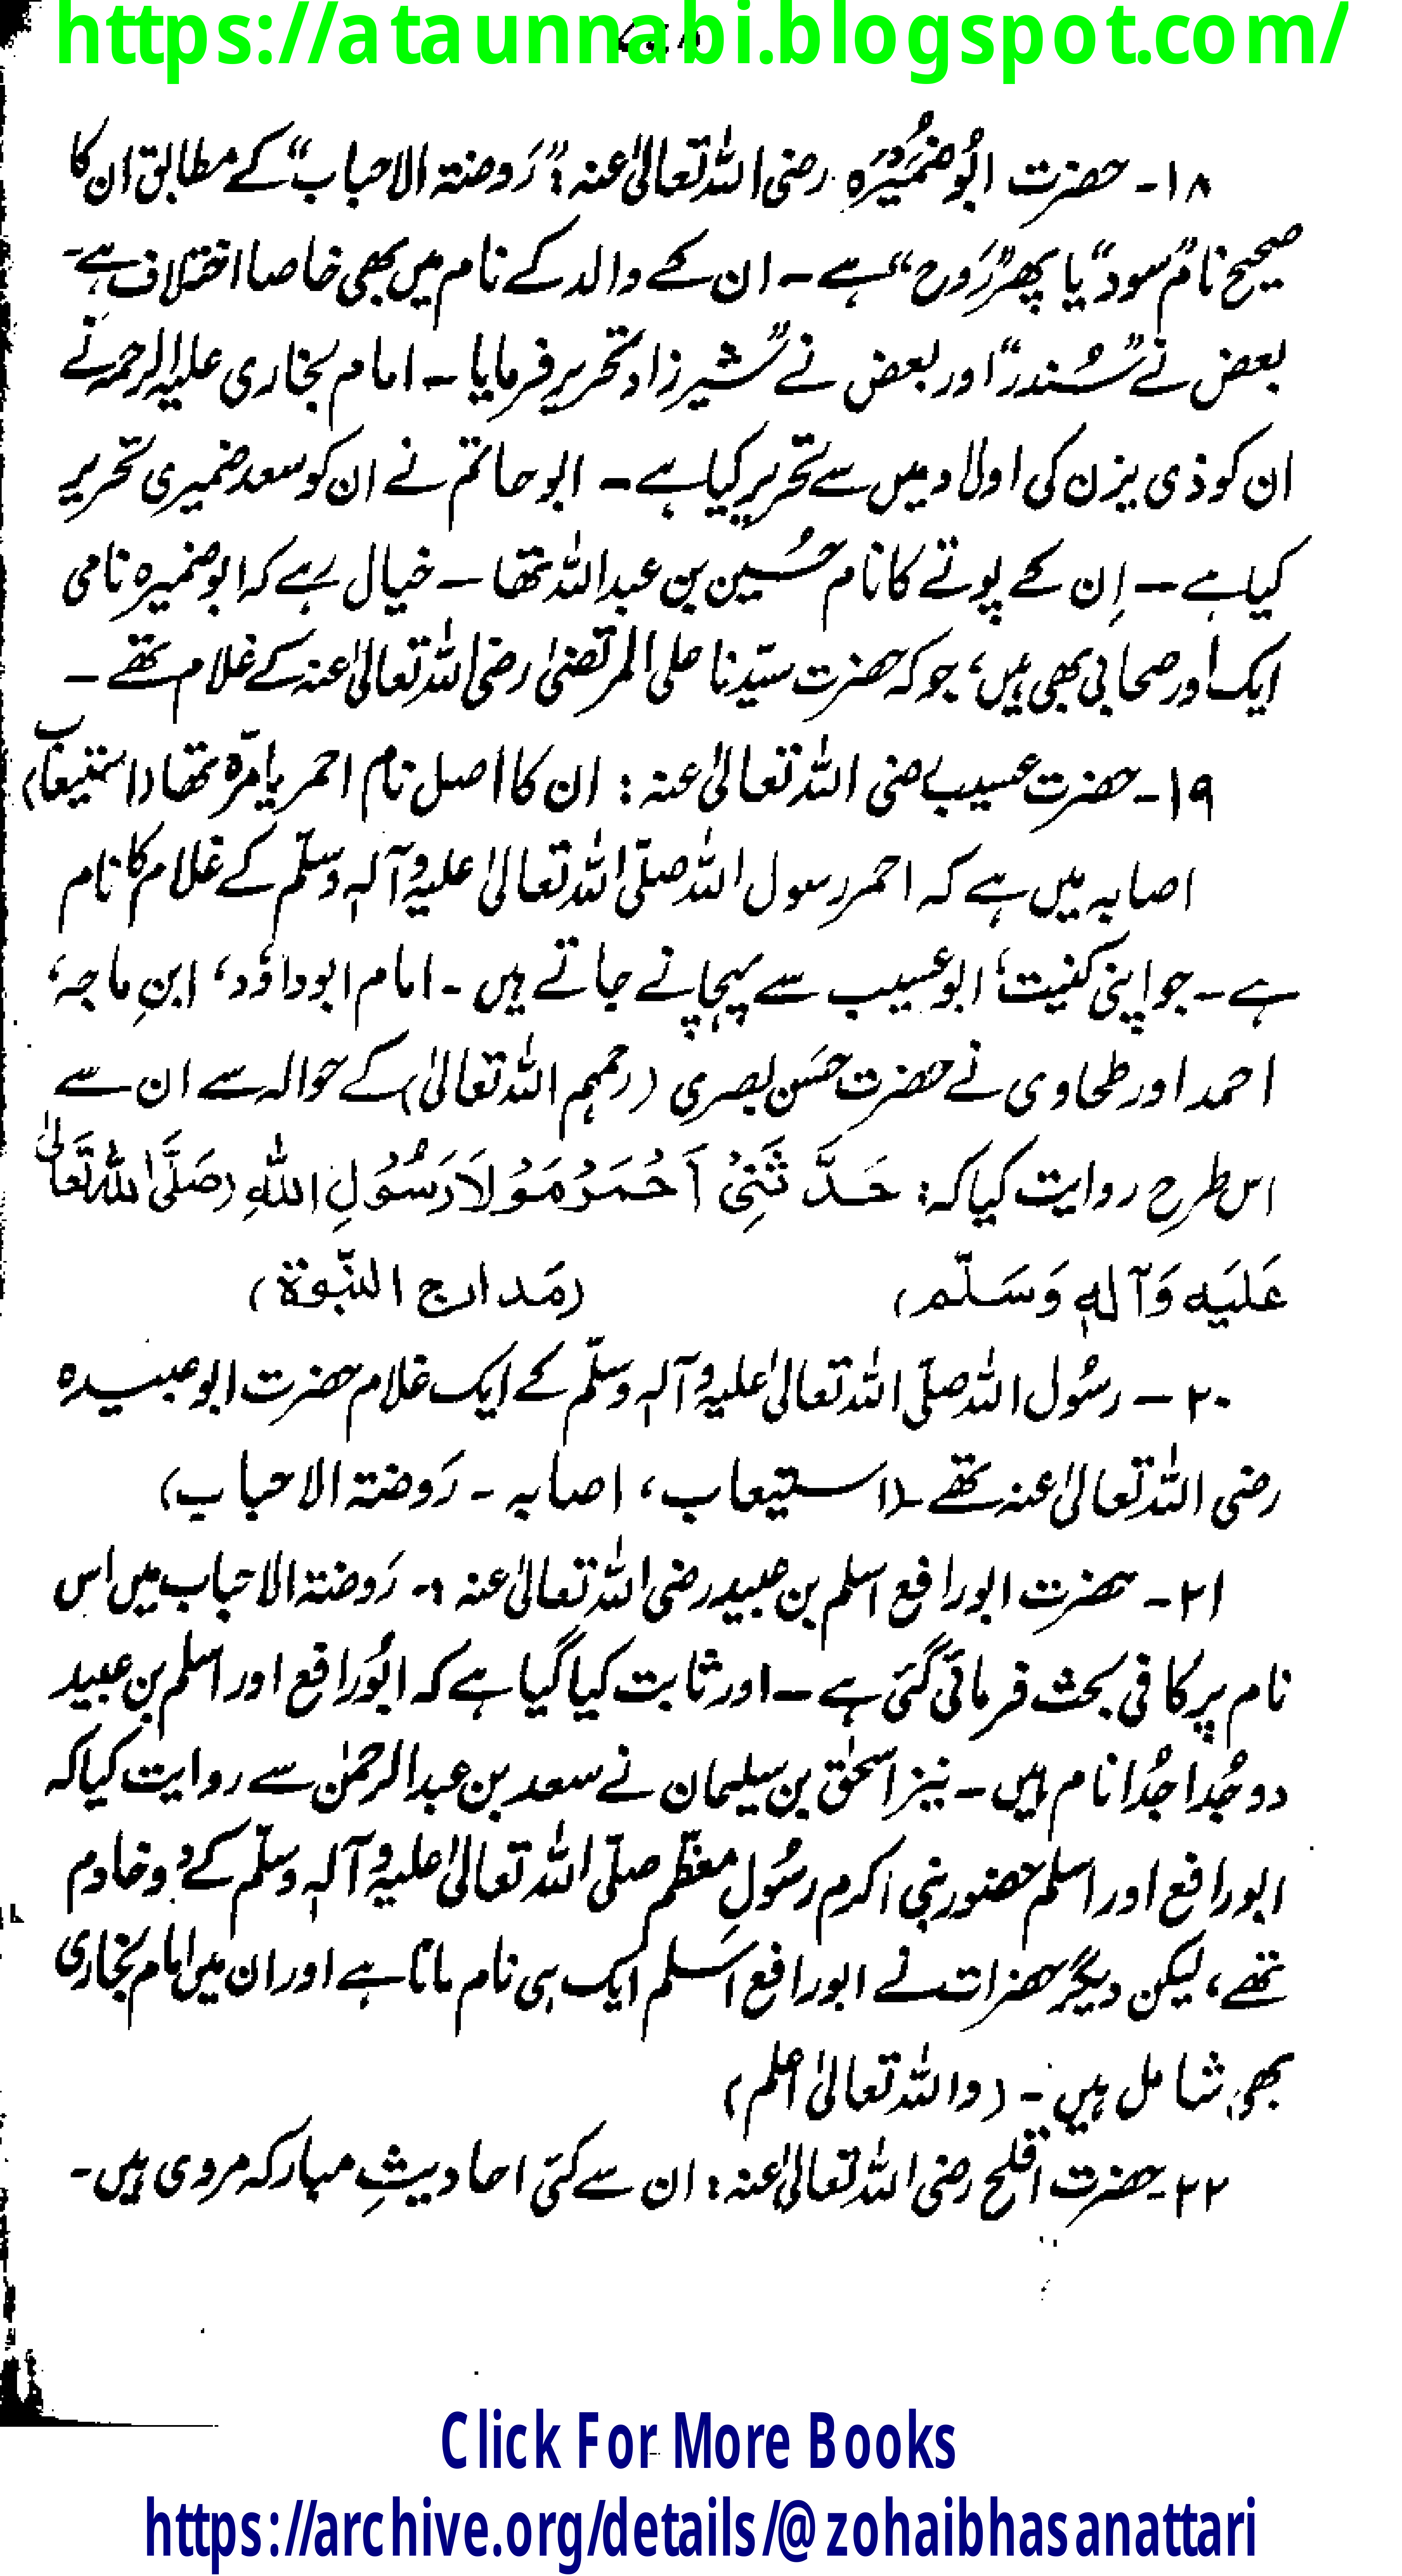 https://ataunnabi.blogspot.com/
۱۸۔ حضرت ابُوضُمَیْرَہ رضی اللہ تعالیٰ عنہ: ”رَوضتہ الاحباب“ کے مطابق ان کا
صحیح نام ”سود“ یا پھر ”رَورح“ ہے ۔ ان کے والد کے نام میں بھی خاصا اختلاف ہے۔
بعض نے ”سُندر“ اور بعض نے ”شیرزاد تحریر فرمایا ۔ امام بخاری علیہ الرحمہ نے
ان کو ذی یزن کی اولاد میں سے تحریر کیا ہے ۔ ابو حاتم نے ان کو سعد ضمیری تحریر
کیا ہے ۔ اِن کے پوتے کا نام حُسین بن عبداللہ تھا ۔ خیال رہے کہ ابوضمیرہ نامی
ایک اور صحابی بھی ہیں، جو کہ حضرت سیّدنا علی المرتضیٰ رضی اللہ تعالیٰ عنہ کے غلام تھے ۔
۱۹۔ حضرت عسیب رضی اللہ تعالیٰ عنہ : ان کا اصل نام احمر یا مرّہ تھا (استیعاب)
اصابہ میں ہے کہ احمر رسول اللہ صلّی اللہ تعالیٰ علیہ و آلہٖ وسلّم کے غلام کا نام
ہے ۔ جو اپنی کنیت، ابوعسیب سے پہچانے جاتے ہیں ۔ امام ابوداؤد، ابنِ ماجہ،
احمد اور طحاوی نے حضرت حسَن بصری (رحمہم اللہ تعالیٰ) کے حوالہ سے ان سے
اس طرح روایت کیا کہ: حَدَّ ثَنِیْ اَحْمَرُ مَوْلاَ رَسُوْلِ اللہِ (صَلَّی اللہُ تَعَالیٰ
عَلَیہ وَآلہٖ وَسَلّم) (مَدارج النّبوة)
۲۰ ۔ رسُول اللہ صلّی اللہ تعالیٰ علیہ و آلہٖ وسلّم کے ایک غلام حضرت ابوعبیدہ
رضی اللہ تعالیٰ عنہ تھے ۔(استیعاب، اصابہ ۔ رَوضتہ الاحباب)
۲۱ ۔ حضرت ابورافع اسلم بن عبید رضی اللہ تعالیٰ عنہ :۔ رَوضتہ الاحباب میں اس
نام پر کافی بحث فرمائی گئی ہے ۔ اور ثابت کیا گیا ہے کہ ابُورافع اور اسلم بن عبید
دو جُدا جُدا نام ہیں ۔ نیز اسحٰق بن سلیمان نے سعد بن عبدالرحمٰن سے روایت کیا کہ
ابورافع اور اسلم حضور نبی اکرم رسُولِ معظّم صلّی اللہ تعالیٰ علیہ و آلہٖ وسلّم کے دو خادم
تھے، لیکن دیگر حضرات نے ابورافع اسلم ایک ہی نام مانا ہے اور ان میں امام بخاری
بھی شامل ہیں ۔ (واللہ تعالیٰ اعلم)
۲۲ ۔ حضرت افلح رضی اللہ تعالیٰ عنہ : ان سے کئی احادیثِ مبارکہ مروی ہیں ۔
Click For More Books
https://archive.org/details/@zohaibhasanattari